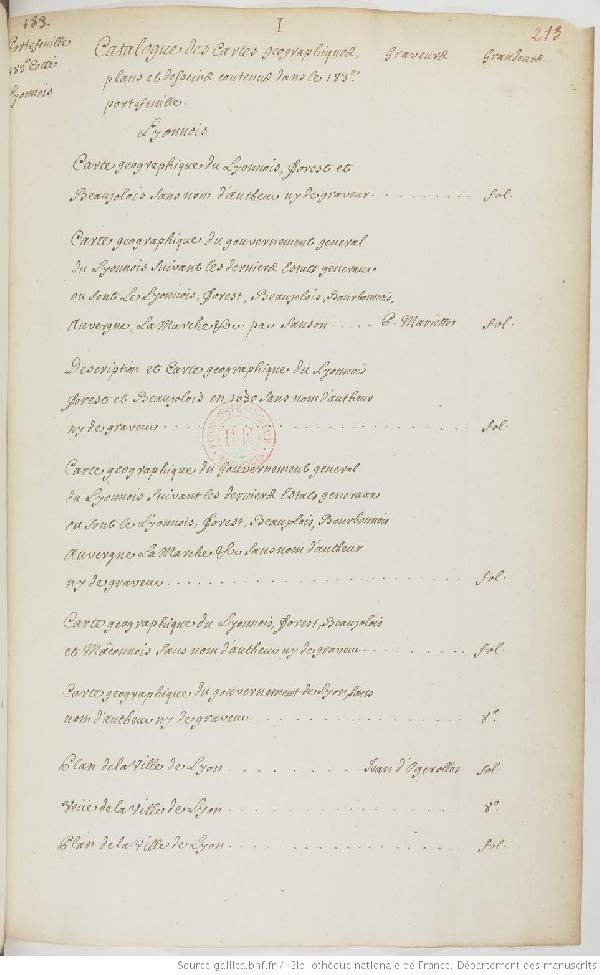 183.
I
213
Portefeuille
183e Cotté
Lyonnois
Catalogue des Cartes geographiques, Graveurs Grandeurs
plans et desseins contenus dans le 183e
portefeuille.
Lyonnois
Carte geographique du Lyonnois, Forest et
Beaujolois sans nom d'autheur ny de graveur . . . . . . . . fol.
Carte geographique du gouvernement general
du Lyonnois suivant les derniers Estats generaux
ou sont Le Lyonnois, Forest, Beaujolois, Bourbonnois,
Auvergne, La Marche &c par Sanson . . . . . P. Mariette fol.
Description et Carte geographique du Lyonnois
Forest et Beaujolois en 1630 sans nom d'autheur
ny de graveur . . . . . . . . fol.
Carte geographique du Gouvernement general
du Lyonnois suivant les derniers Estats generaux
ou sont le Lyonnois, Forest, Beaujolois, Bourbonnois
Auvergne La Marche &c sans nom d'autheur
ny de graveur . . . . . . . . fol.
Carte geographique du Lyonnois, Forest, Beaujolois
et Mâconnois sans nom d'autheur ny de graveur . . . . . . . . fol.
Carte geographique du gouvernement de Lyon sans
nom d'autheur ny de graveur . . . . . . . . 8o
Plan de la Ville de Lyon . . . . . . . . Jean d'Ogerolles fol.
Veüe de la Ville de Lyon . . . . . . . . 8o
Plan de la Ville de Lyon . . . . . . . . fol.
Source gallica.bnf.fr / Bibliothèque nationale de France. Département des manuscrits